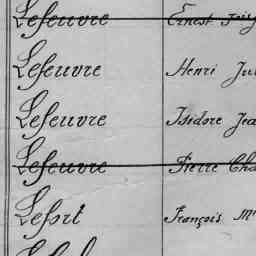 Lefeuvre Ernest
Lefeuvre Henri
Lefeuvre Isidore
Lefeuvre Pierre
Lefort François